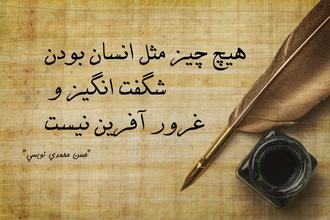 هیچ چیز مثل انسان بودن
شگفت انگیز و
غرور آفرین نیست
"حسن محمدي نويسي"